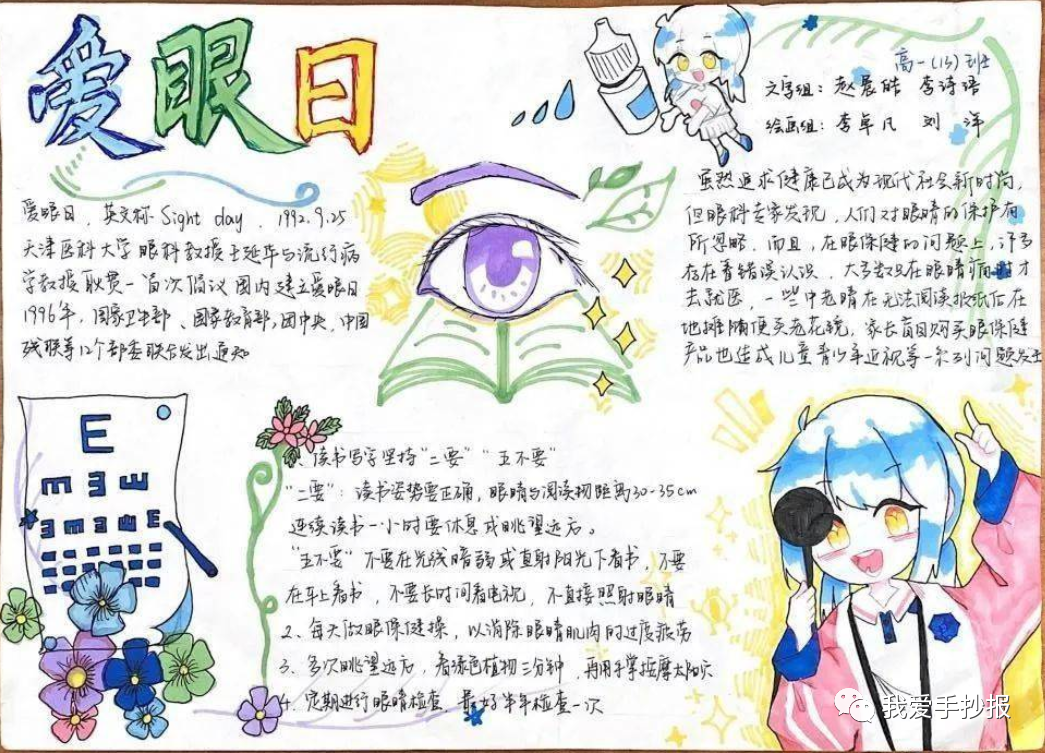 爱眼日
高一(13)班
文字组：赵晨皓 李诗语
绘画组：李卓凡 刘洋
爱眼日，英文称 Sight day，1992.9.25
天津医科大学眼科教授王延华与流行病
学教授耿贯一首次倡议国内建立爱眼日
1996年，国家卫生部、国家教育部，团中央，中国
残联等12个部委联合发出通知
虽然追求健康已成为现代社会新时尚，
但眼科专家发现，人们对眼睛的保护有
所忽略，而且，在眼保健的问题上，许多
存在着错误认识，大多数只在眼睛病时才
去就医，一些中老睛在无法阅读报纸后在
地摊随便买老花镜，家长盲目购买眼保健
产品也造成儿童青少年近视等一系列问题发生
E
E E E
1、读书写字坚持“二要”“五不要”
“二要”：读书姿势要正确，眼睛与阅读物距离30-35cm
连续读书一小时要休息或眺望远方。
“五不要”不要在光线暗弱或直射阳光下看书，不要
在车上看书，不要长时间看电视，不直接照射眼睛
2、每天做眼保健操，以消除眼睛肌肉的过度疲劳
3、多次眺望远方，看绿色植物三分钟，再用手掌按摩太阳穴
4、定期进行眼睛检查，最好半年检查一次
我爱手抄报